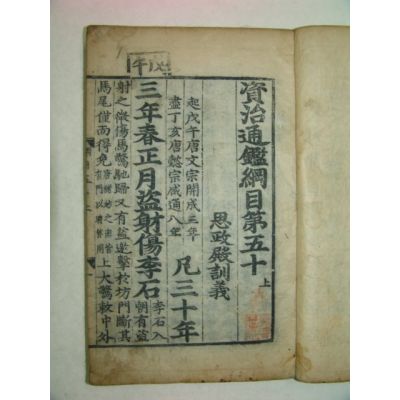 資治通鑑綱目第五十上
思政殿訓義
起戊午唐文宗開成三年
盡丁亥唐懿宗咸通八年
凡三十年
戊午
三年春正月盜射傷李石
李石入
朝有盜
射之微傷馬驚馳歸又有盜邀擊於坊門斷其
馬尾僅而得免
上大驚敕中外